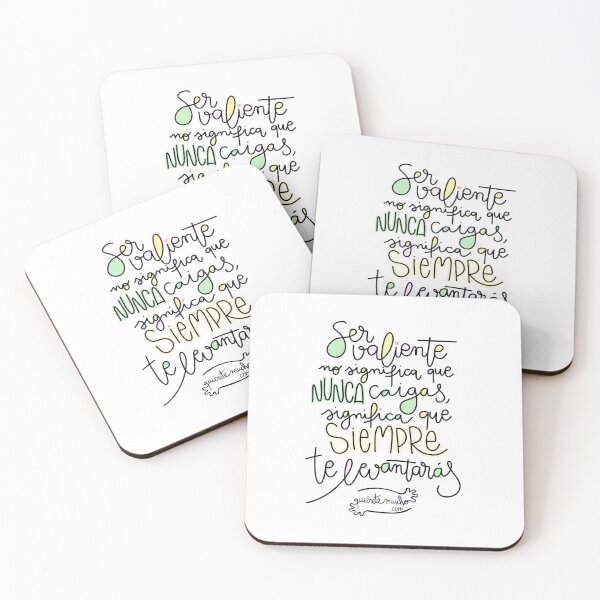 Ser
valiente
no significa que
NUNCA caigas,
que
Ser
valiente
no significa que
NUNCA caigas,
significa que
SIEMPRE
te levantarás
Ser
valiente
no significa que
NUNCA caigas,
significa que
SIEMPRE
te levantarás
quiérete mucho
.com
Ser
valiente
no significa que
NUNCA caigas,
significa que
SIEMPRE
te levantarás
quiérete mucho
.com